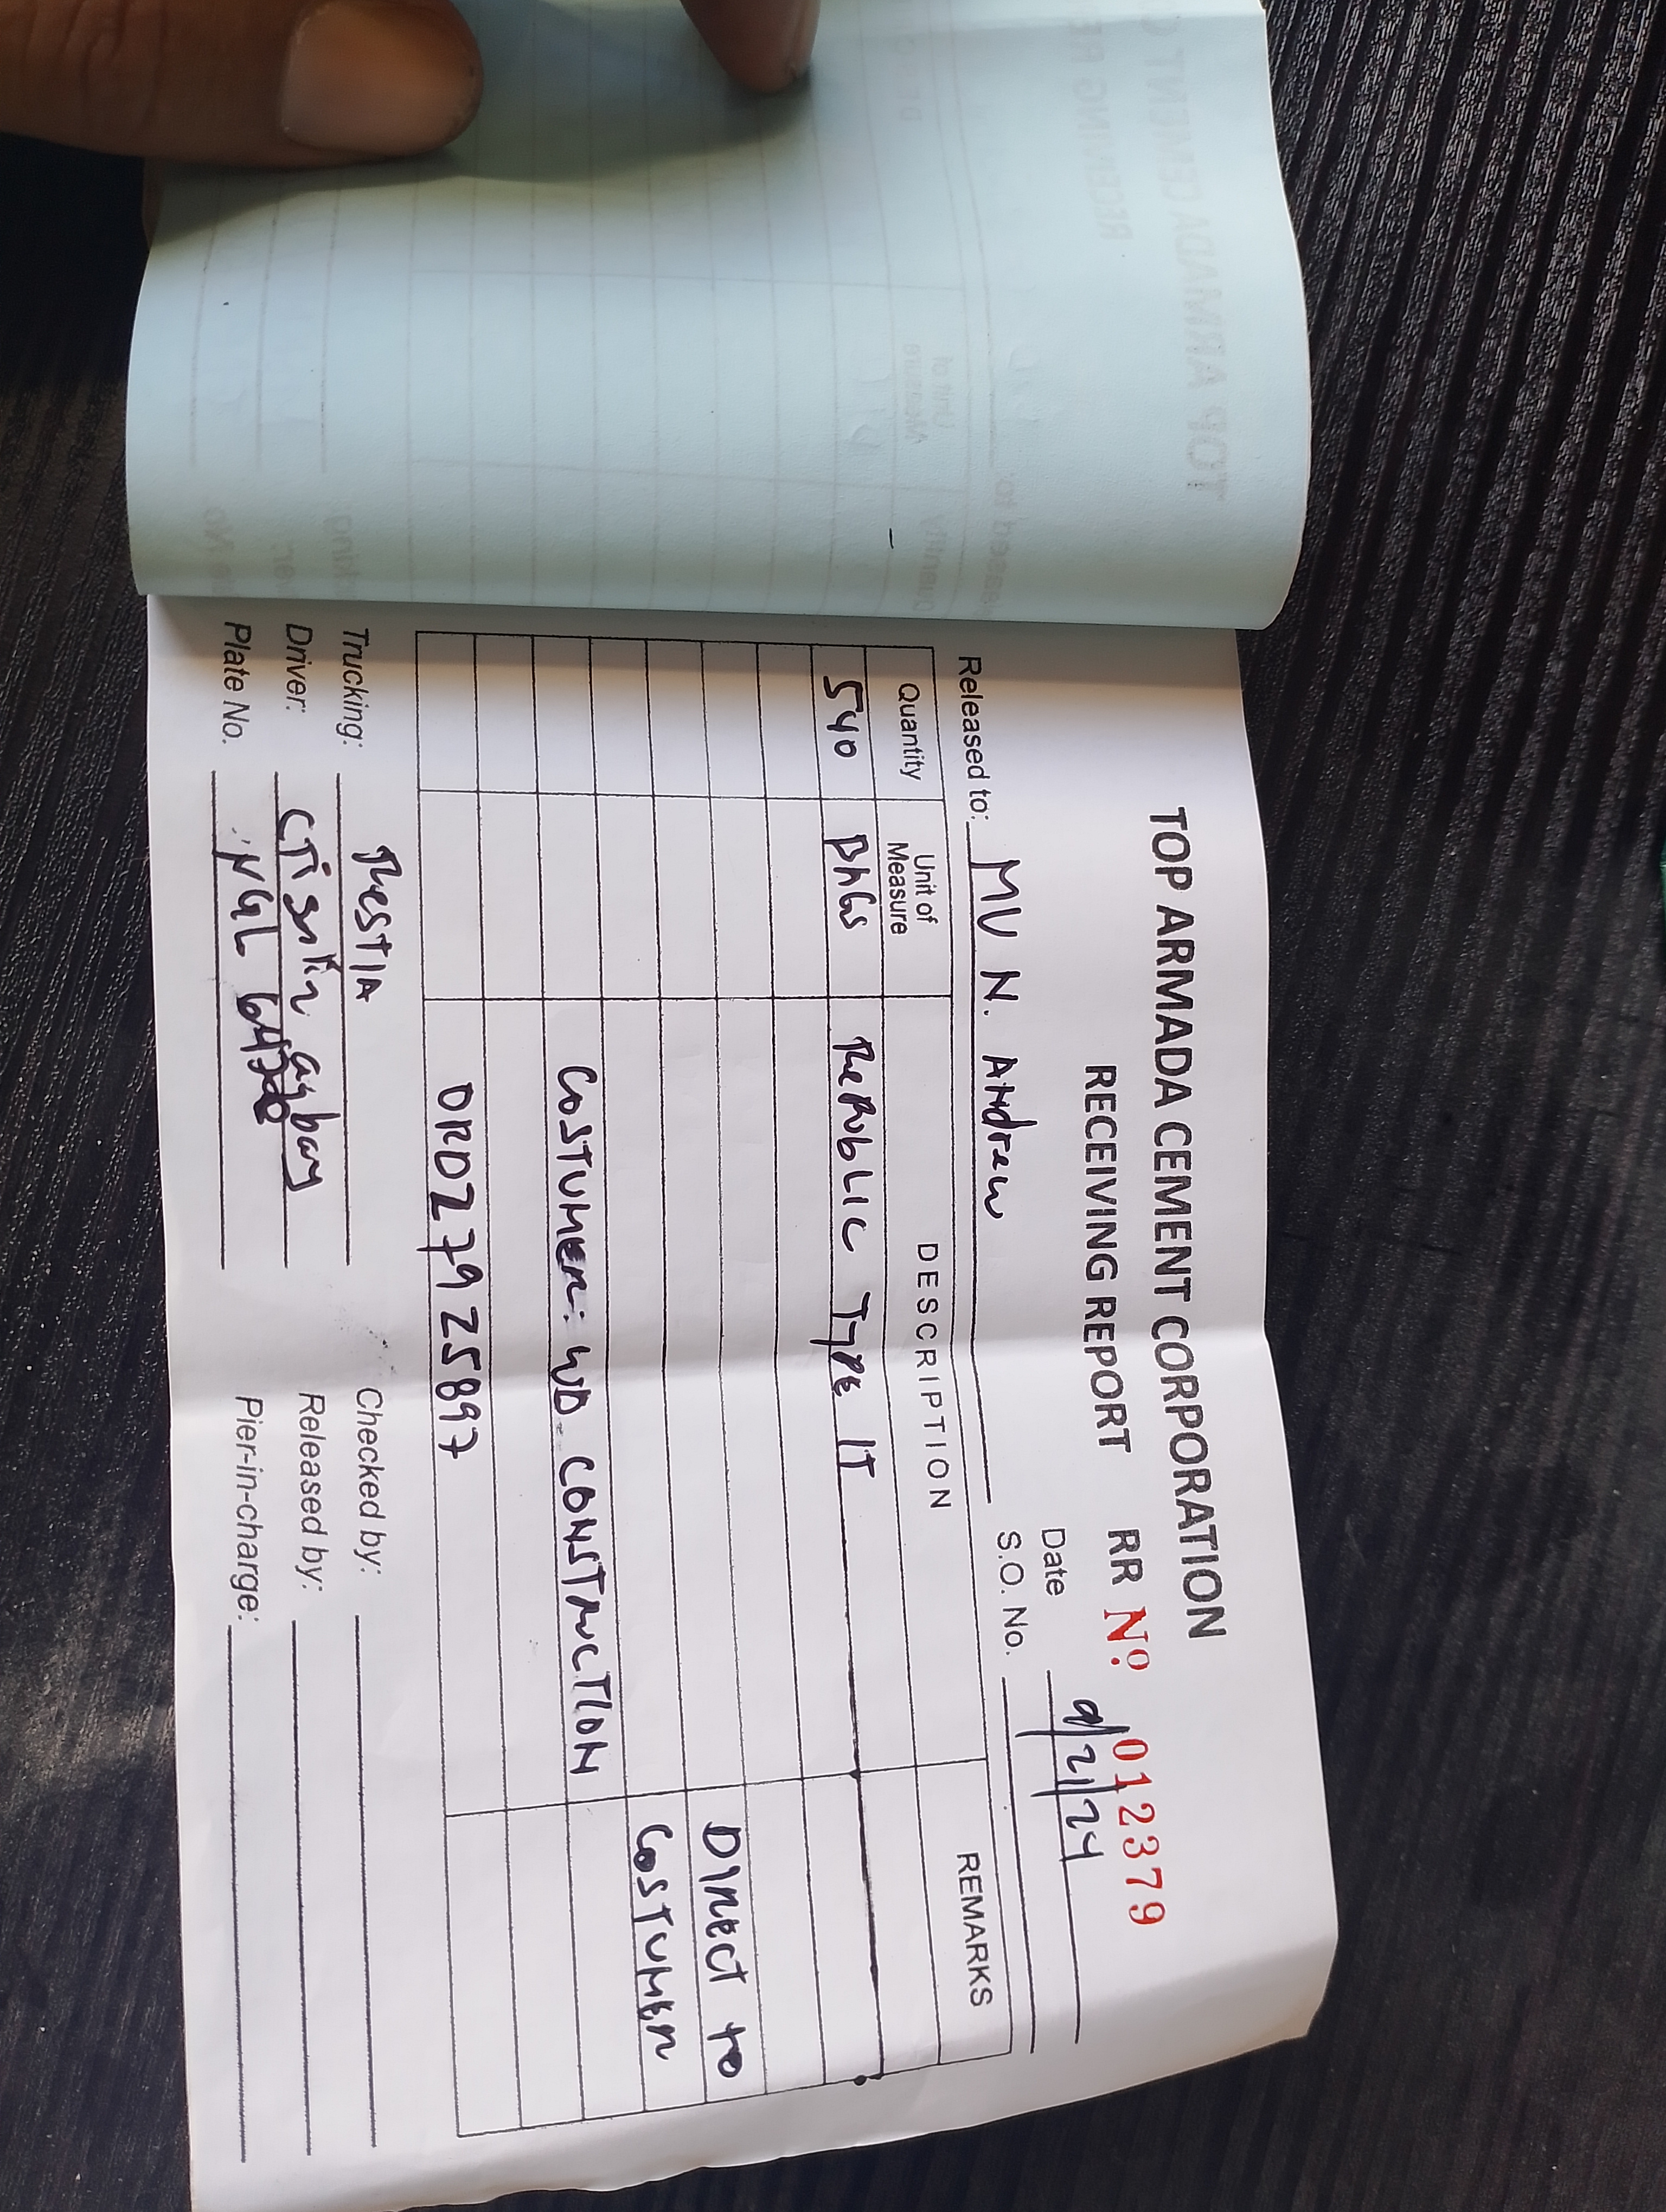 TOP ARMADA CEMENT CORPORATION
RECEIVING REPORT RR Nº 012379
Date 9/21/24
Released to: MV N. Andrew S.O. No.
Quantity Unit of Measure DESCRIPTION REMARKS
540 BAGS RePubLIC TYPE IT
DIRECT to
COSTUMER
COSTUMER: WD CONSTRUCTION
ORD27925897
Trucking: RestIA Checked by:
Driver: aybay Released by:
Plate No. NGL Pier-in-charge: